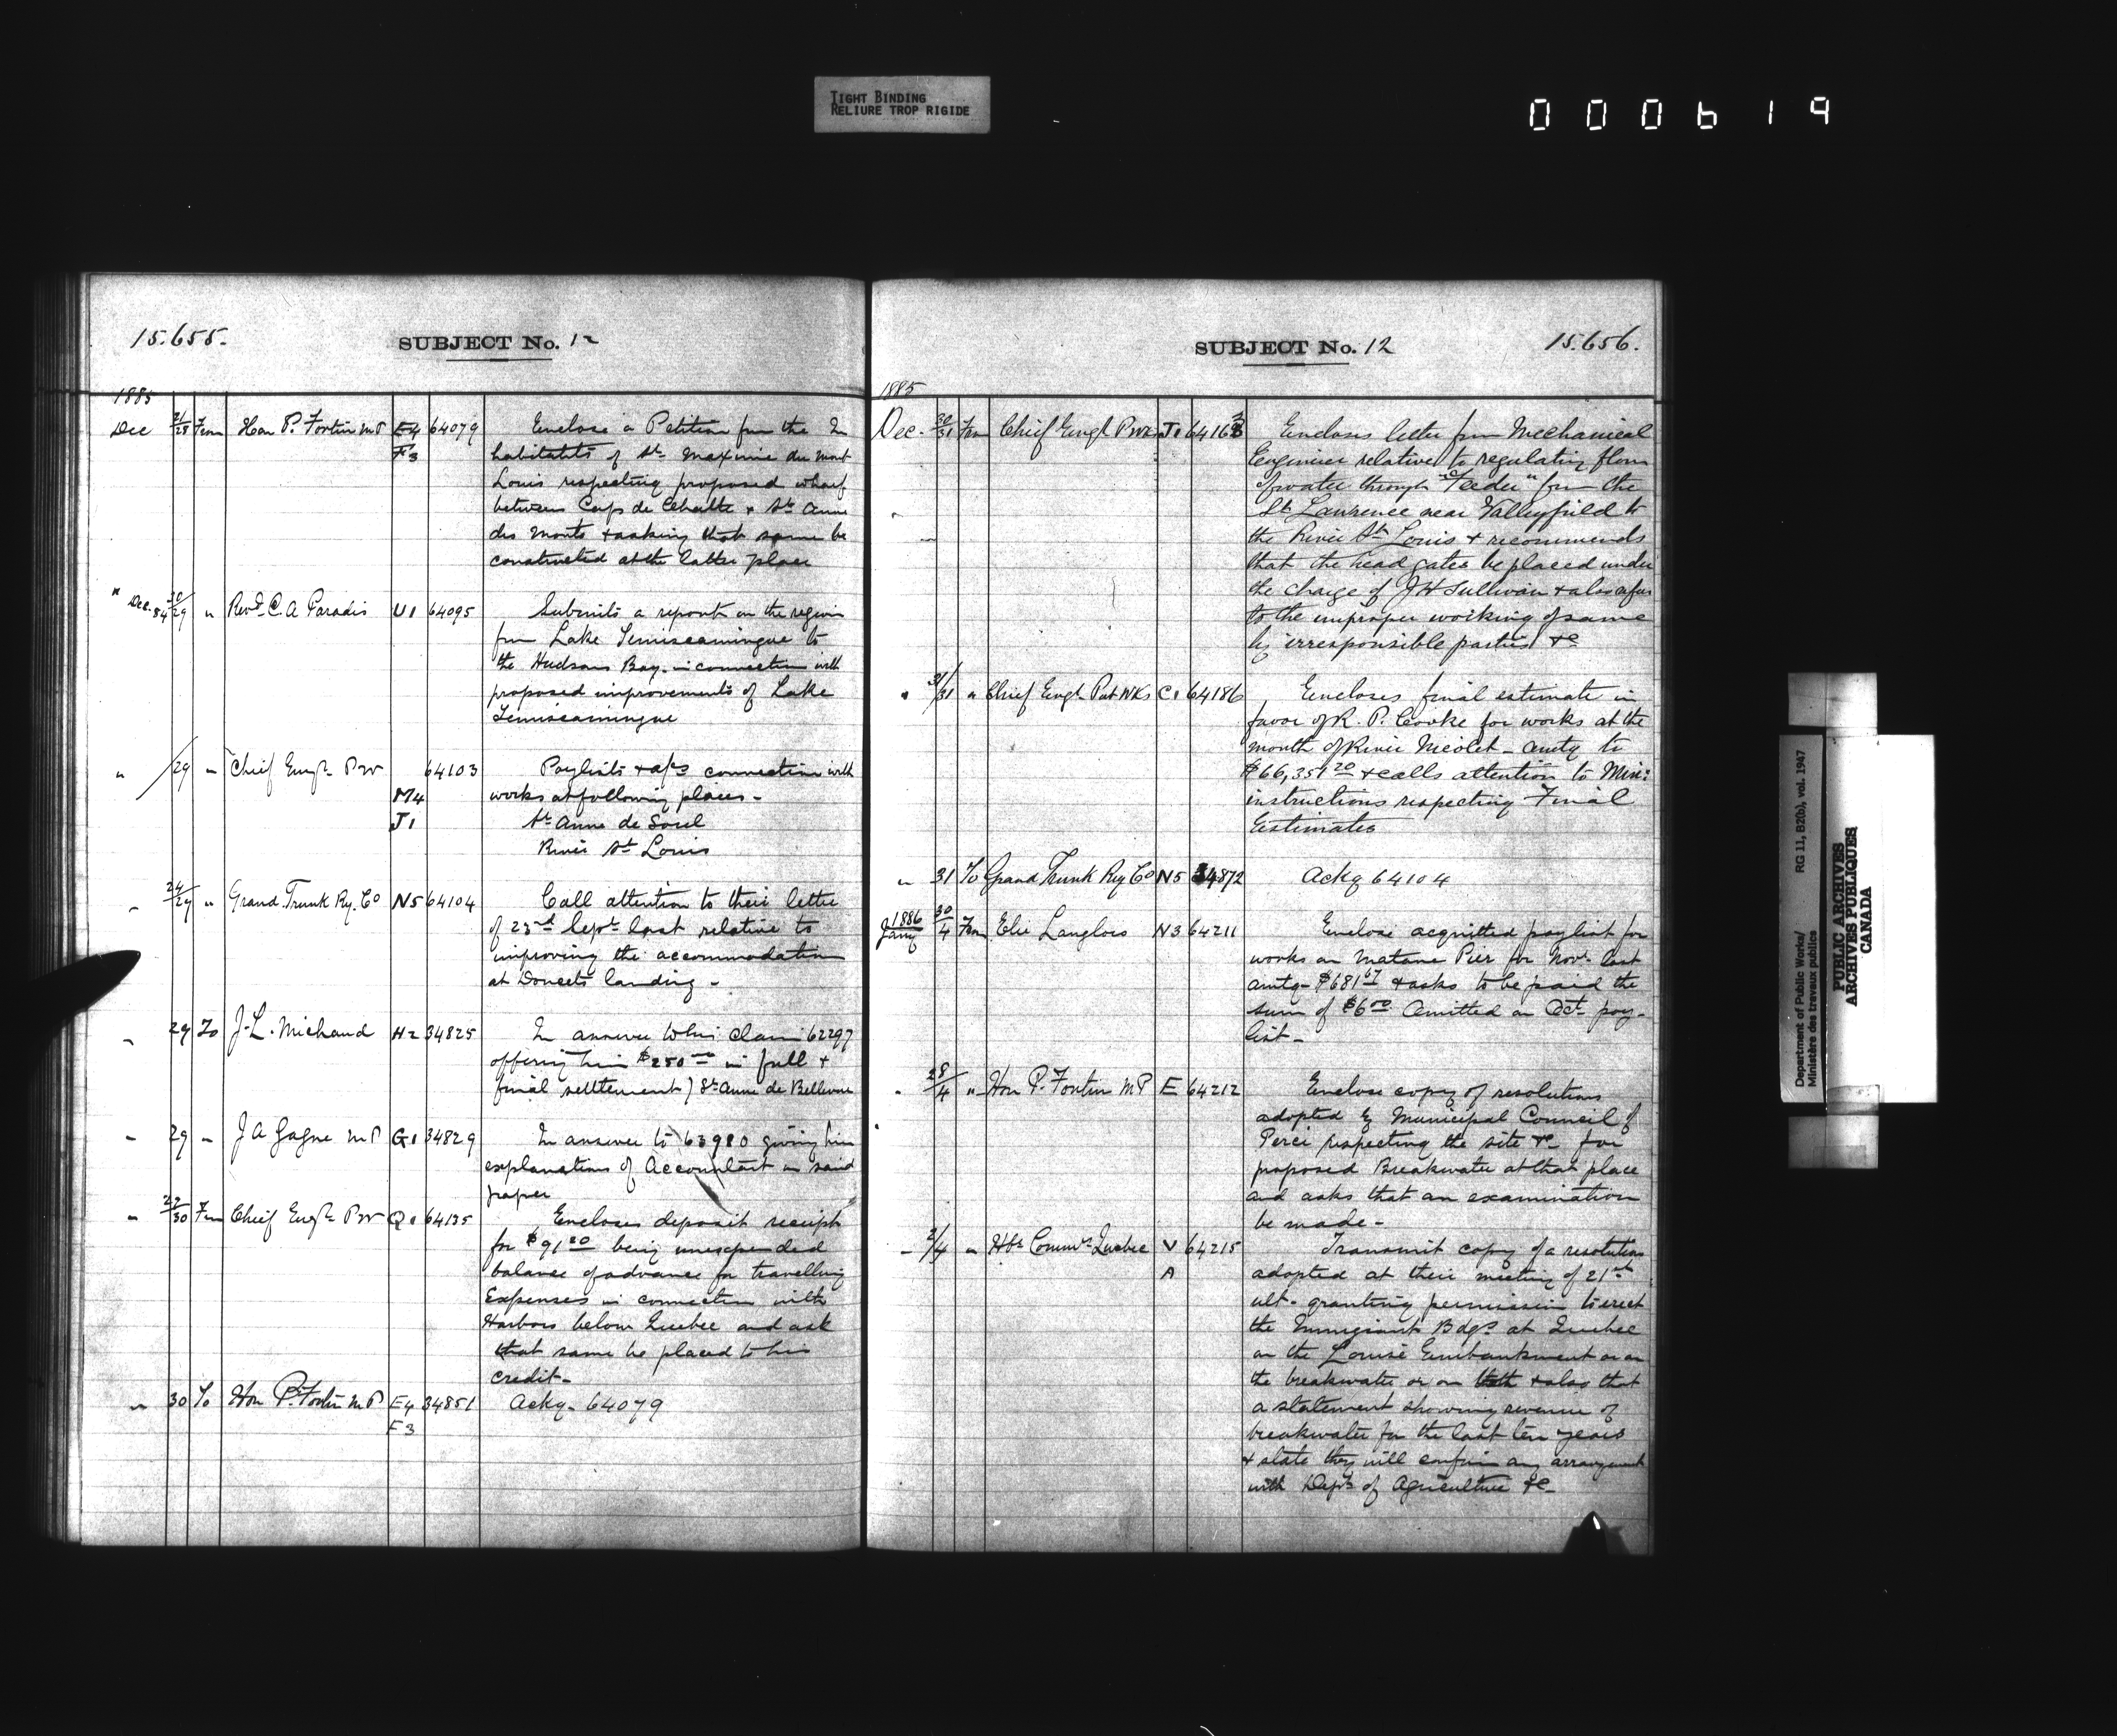 TIGHT BINDING
RELIURE TROP RIGIDE
000619
15.655.
SUBJECT No. 12
1885
Dec 21/28 From Hon P. Fortin MP E4 64079 Enclose a Petition from the In
F3 habitants of St. Maxime du Mont
Louis respecting proposed wharf
between Cap de Chatte & Ste Anne
des Monts & asking that same be
constructed at the latter place
" Dec. 84 30/29 " Revd. C. A Paradis U1 64095 Submits a report on the region
from Lake Temiscamingue to
the Hudsons Bay in connection with
proposed improvements of Lake
Temiscamingue
" /29 " Chief Engr. PW 64103 Paylists & a/cs connection with
M4 works at following places -
J1 St. Anne de Sorel
River St Louis
" 24/29 " Grand Trunk Ry. Co N5 64104 Call attention to their letter
of 23rd Sept. last relative to
improving the accommodation
at Doucets landing -
" 29 To J. L. Michaud H2 34825 In answer to his claim 62297
offering him $250.00 in full &
final settlement) Ste Anne de Bellevue
" 29 " J A Gagne MP G1 34829 In answer to 63980 giving him
explanations of Accountant on said
paper
" 22/30 From Chief Engr. PW Q1 64135 Encloses deposit receipt
for $91.20 being unexpended
balance of advance for travelling
Expenses in connection with
Harbors below Quebec and ask
that same be placed to his
credit -
" 30 To Hon P. Fortin MP E4 34851 Ackg. 64079
F3
SUBJECT No. 12
15.656.
1885
Dec. 30/31 From Chief Engr PWk J1 64163 Encloses letter from Mechanical
Engineer relative to regulating flow
of water through "Feeder" from the
St Lawrence near Valleyfield to
the River St. Louis & recommends
that the head gates be placed under
the charge of J H Sullivan & also refers
to the improper working of same
by irresponsible parties &c
" 31/31 " Chief Engr. Pub Wks C1 64186 Encloses final estimate in
favor of R. P. Cooke for works at the
mouth of River Nicolet - amtg to
$66,351.20 & calls attention to Min:
instructions respecting Final
Estimates
" 31 To Grand Trunk Ry Co N5 34872 Ackg 64104
1886
Jany 30/4 From Elie Langlois N3 64211 Enclose acquitted paylist for
works on Matane Pier for Nov. last
amtg - $681.67 & asks to be paid the
sum of $6.00 Omitted on Oct. pay-
list -
" 28/4 " Hon P. Fortin MP E 64212 Enclose copy of resolutions
adopted by Municipal Council of
Perce respecting the site &c for
proposed Breakwater at that place
and asks that an examination
be made -
" 2/4 " Hbr. Commrs. Quebec V 64215 Transmit copy of a resolution
A adopted at their meeting of 21st
ult - granting permission to erect
the Immigrant Bdgs. at Quebec
on the Louise Embankment or on
the breakwater or on both & also that
a statement showing revenue of
breakwater for the last ten years
& state they will confirm any arrangement
with Dept. of Agriculture &c -
Department of Public Works/
Ministère des travaux publics
RG 11, B2(b), vol. 1947
PUBLIC ARCHIVES
ARCHIVES PUBLIQUES
CANADA